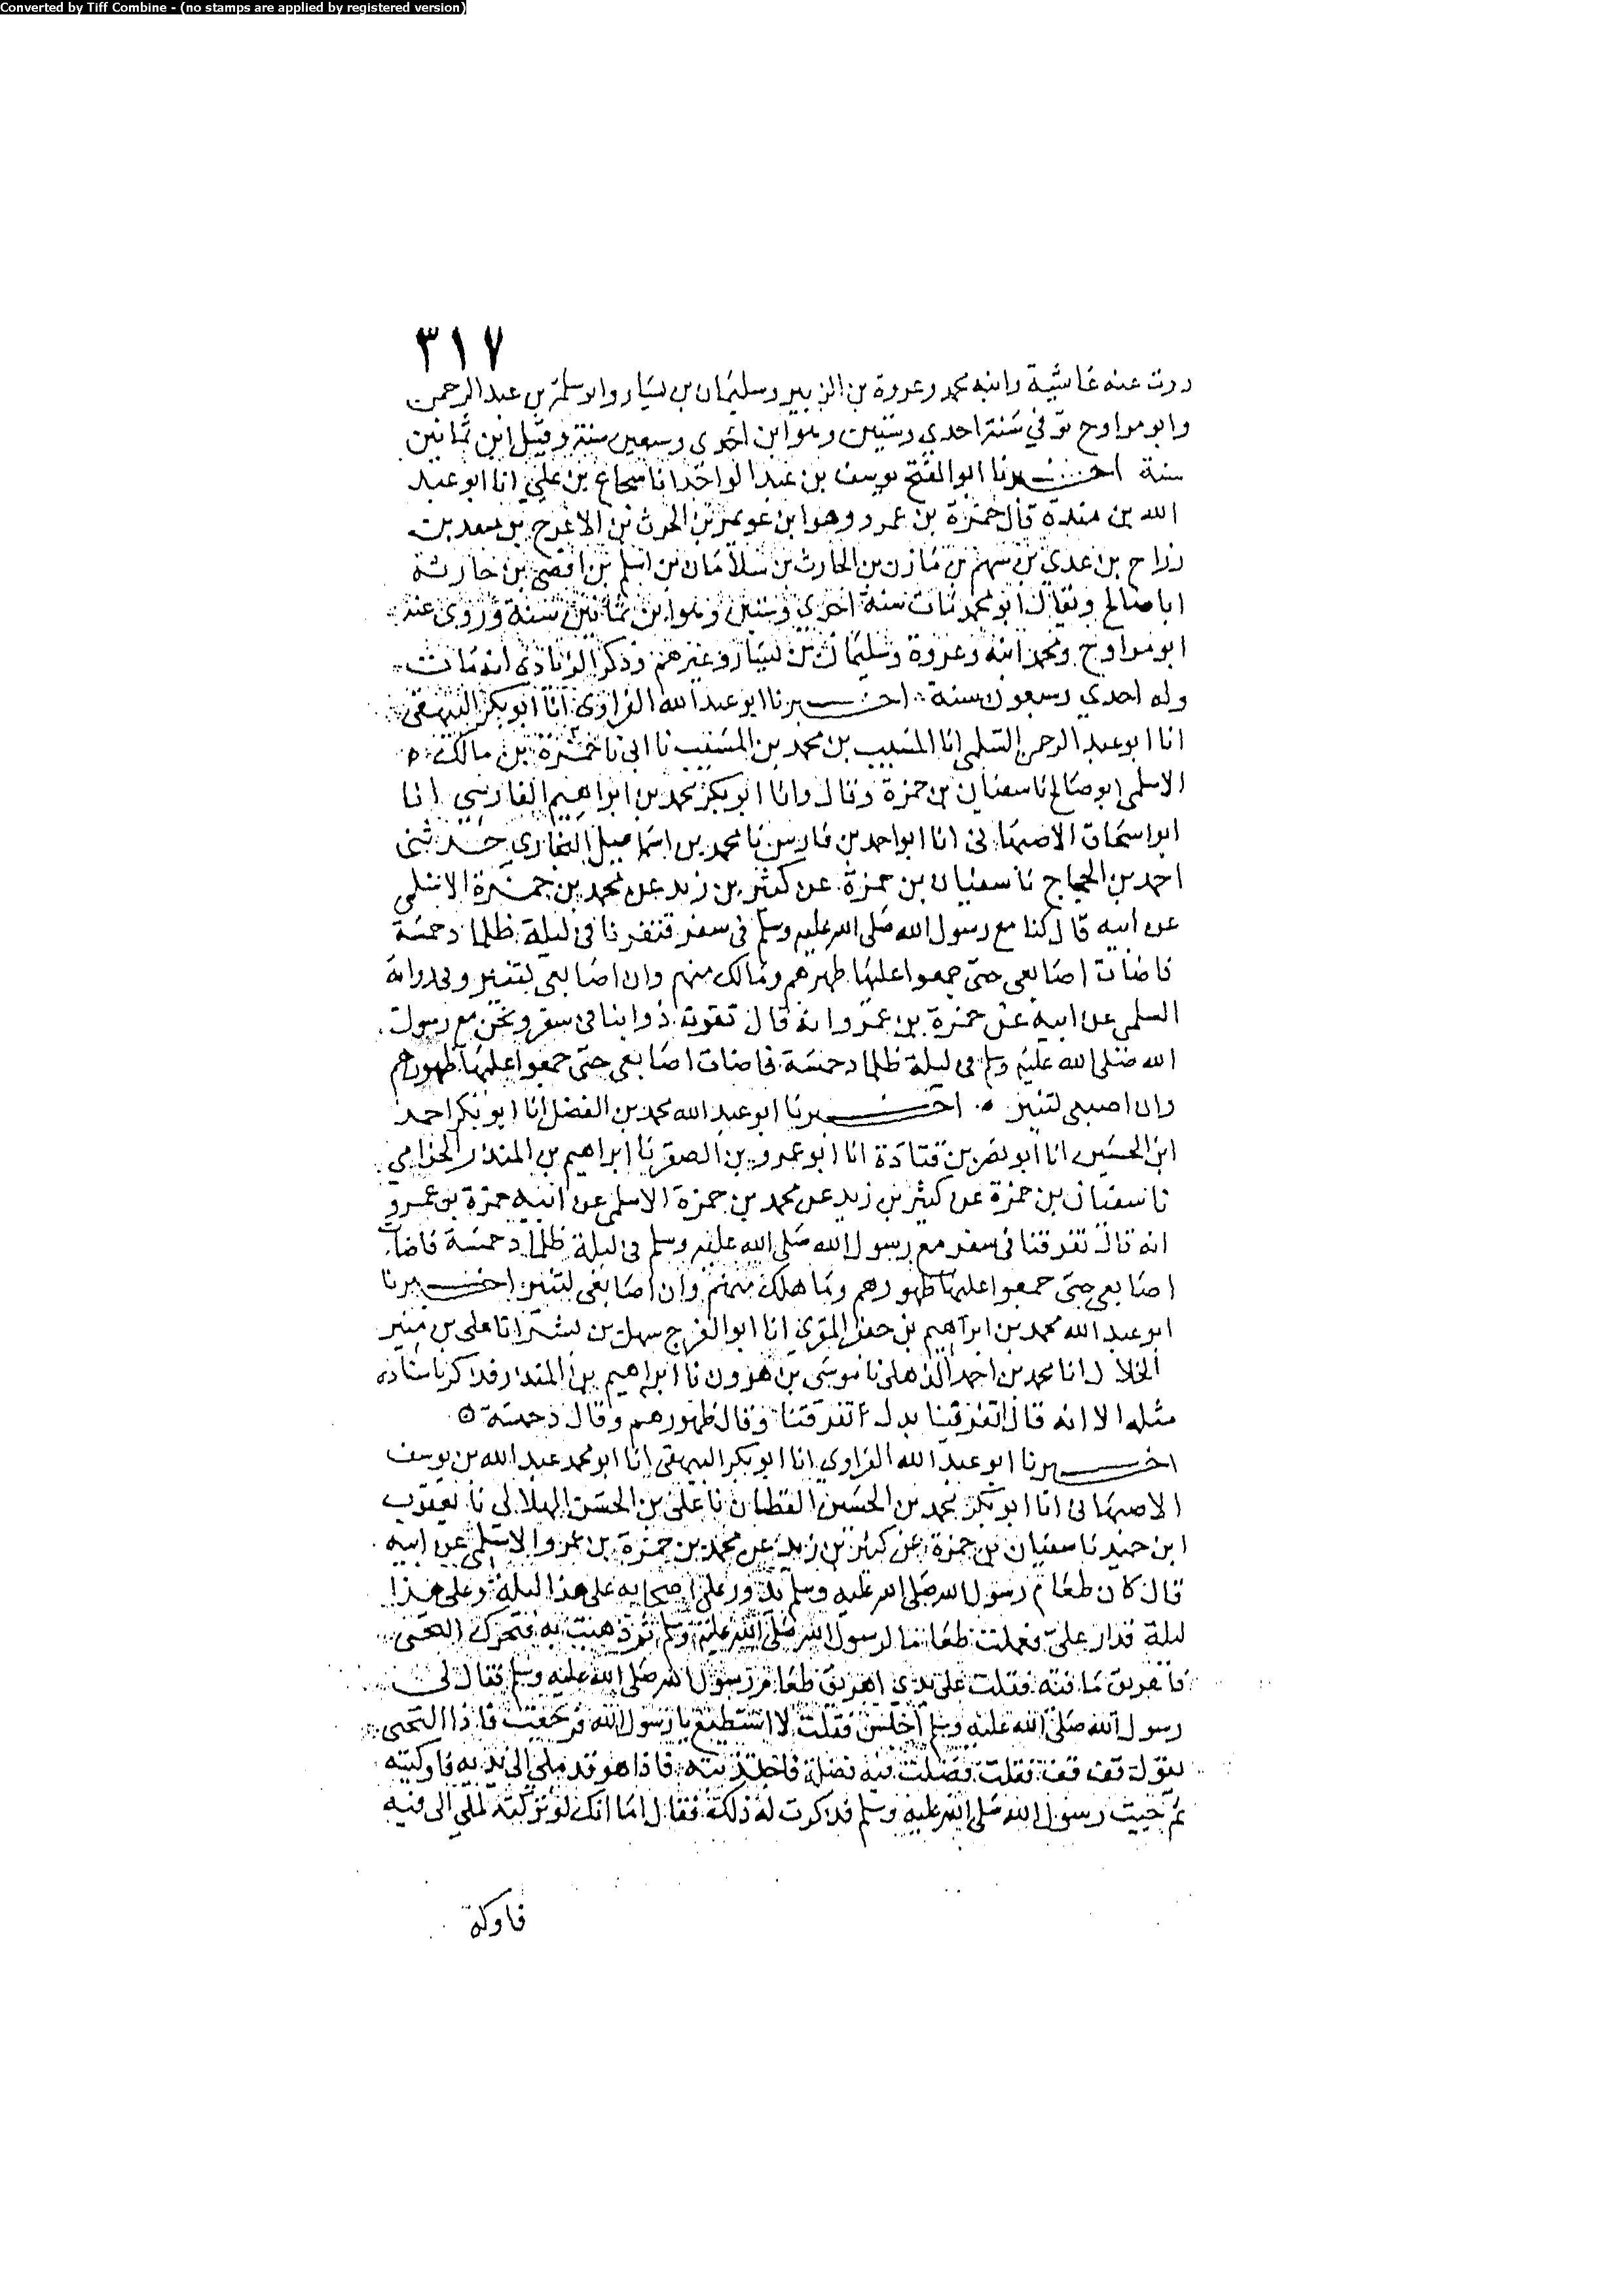 Converted by Tiff Combine - (no stamps are applied by registered version)
٣١٧
روت عنه عائشة وابنه محمد وعروة بن الزبير وسليمان بن يسار وابو سلمة بن عبد الرحمن
وابو مراوح توفي سنة احدى وستين وهو ابن احدى وسبعين سنة وقيل ابن ثمانين
سنة اخبرنا ابو الفتح يوسف بن عبد الواحد انا شجاع بن علي انا ابو عبد
الله بن مندة قال حمزة بن عمرو وهو ابن عويمر بن الحرث بن الاعرج بن سعد بن
رزاح بن عدي بن سهم بن مازن بن الحارث بن سلامان بن اسلم بن افصى بن حارثة
ابا صالح ويقال ابو محمد مات سنة احدى وستين وهو ابن ثمانين سنة وروى عنه
ابو مراوح ومحمد ابنه وعروة وسليمان بن يسار وغيرهم وذكر الزيادي انه مات
وله احدى وسبعون سنة اخبرنا ابو عبد الله الفراوي انا ابو بكر البيهقي
انا ابو عبد الرحمن السلمي انا المسيب بن محمد بن المسيب نا ابي نا حمزة بن مالك
الاسلمي ابو صالح نا سفيان بن حمزة وقال وانا ابو بكر محمد بن ابراهيم الفارسي انا
ابو اسحاق الاصبهاني انا ابو احمد بن فارس نا محمد بن اسماعيل البخاري حدثني
احمد بن الحجاج نا سفيان بن حمزة عن كثير بن زيد عن محمد بن حمزة الاسلمي
عن ابيه قال كنا مع رسول الله صلى الله عليه وسلم في سفر فتفرقنا في ليلة ظلما دحمسة
فاضات اصابعي حتى جمعوا عليها ظهرهم وما لك منهم وان اصابعي لتنير وفي رواية
السلمي عن ابيه عن حمزة بن عمرو انه قال تفرقت دوابنا في سفر ونحن مع رسول
الله صلى الله عليه وسلم في ليلة ظلما دحمسة فاضات اصابعي حتى جمعوا عليها ظهورهم
وان اصبعي لتنير اخبرنا ابو عبد الله محمد بن الفضل انا ابو بكر احمد
ابن الحسين انا ابو نصر بن قتادة انا ابو عمرو بن الصقر نا ابراهيم بن المنذر الحزامي
نا سفيان بن حمزة عن كثير بن زيد عن محمد بن حمزة الاسلمي عن ابيه حمزة بن عمرو
انه قال تفرقنا في سفر مع رسول الله صلى الله عليه وسلم في ليلة ظلما دحمسة فاضات
اصابعي حتى جمعوا عليها ظهورهم وما هلك منهم وان اصابعي لتنير اخبرنا
ابو عبد الله محمد بن ابراهيم بن جعفر المقرئ انا ابو الفرج سهل بن بشر انا علي بن منير
الخلال انا محمد بن احمد الذهلي نا موسى بن هرون نا ابراهيم بن المنذر فذكر باسناده
مثله الا انه قال انفرقنا بدل تفرقنا وقال ظهورهم وقال دحمسة
اخبرنا ابو عبد الله الفراوي انا ابو بكر البيهقي انا ابو محمد عبد الله بن يوسف
الاصبهاني انا ابو بكر محمد بن الحسين القطان نا علي بن الحسن الهلالي نا يعقوب
ابن حميد نا سفيان بن حمزة عن كثير بن زيد عن محمد بن حمزة بن عمرو الاسلمي عن ابيه
قال كان طعام رسول الله صلى الله عليه وسلم يدور على اصحابه على هذا ليلة وعلى هذا
ليلة فدار علي فعملت طعاما لرسول الله صلى الله عليه وسلم ثم ذهبت به فتحرك النحي
فاهريق ما فيه فقلت على يدي اهريق طعام رسول الله صلى الله عليه وسلم فقال لي
رسول الله صلى الله عليه وسلم اجلس فقلت لا استطيع يا رسول الله فرجعت فاذا النحي
يقول قف قف فقلت فضلت فيه فضلة فاجتذبته فاذا هو قد ملئ الى يديه فاوكيته
ثم جيت رسول الله صلى الله عليه وسلم فذكرت له ذلك فقال اما انك لو تركته لملئ الى فيه
فاوكه